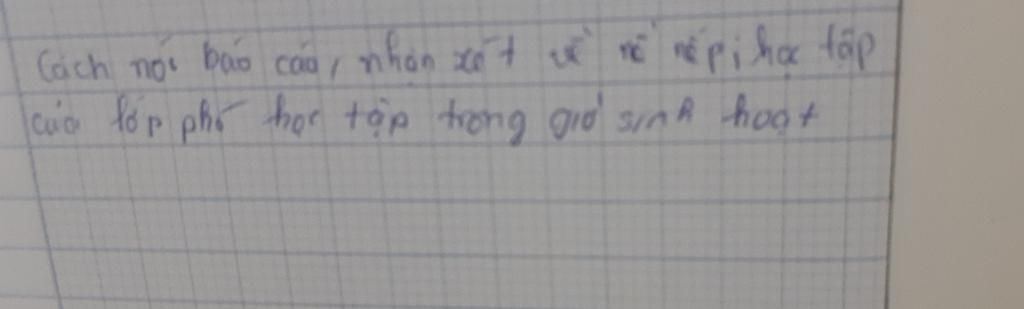 Cách nói báo cáo, nhận xét về nề nếp, học tập
của lớp phó học tập trong giờ sinh hoạt